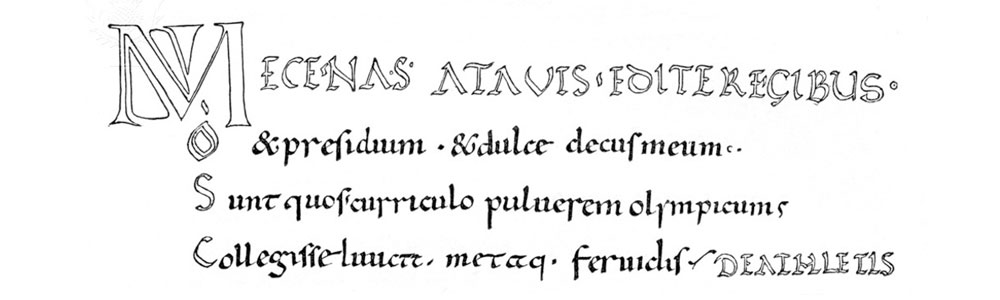 MECENAS ATAVIS EDITE REGIBUS.
O & presidium . & dulce decus meum.
Sunt quos curriculo puluerem olympicum
Collegisse iuuat. metaq. feruidis DEATHLETIS